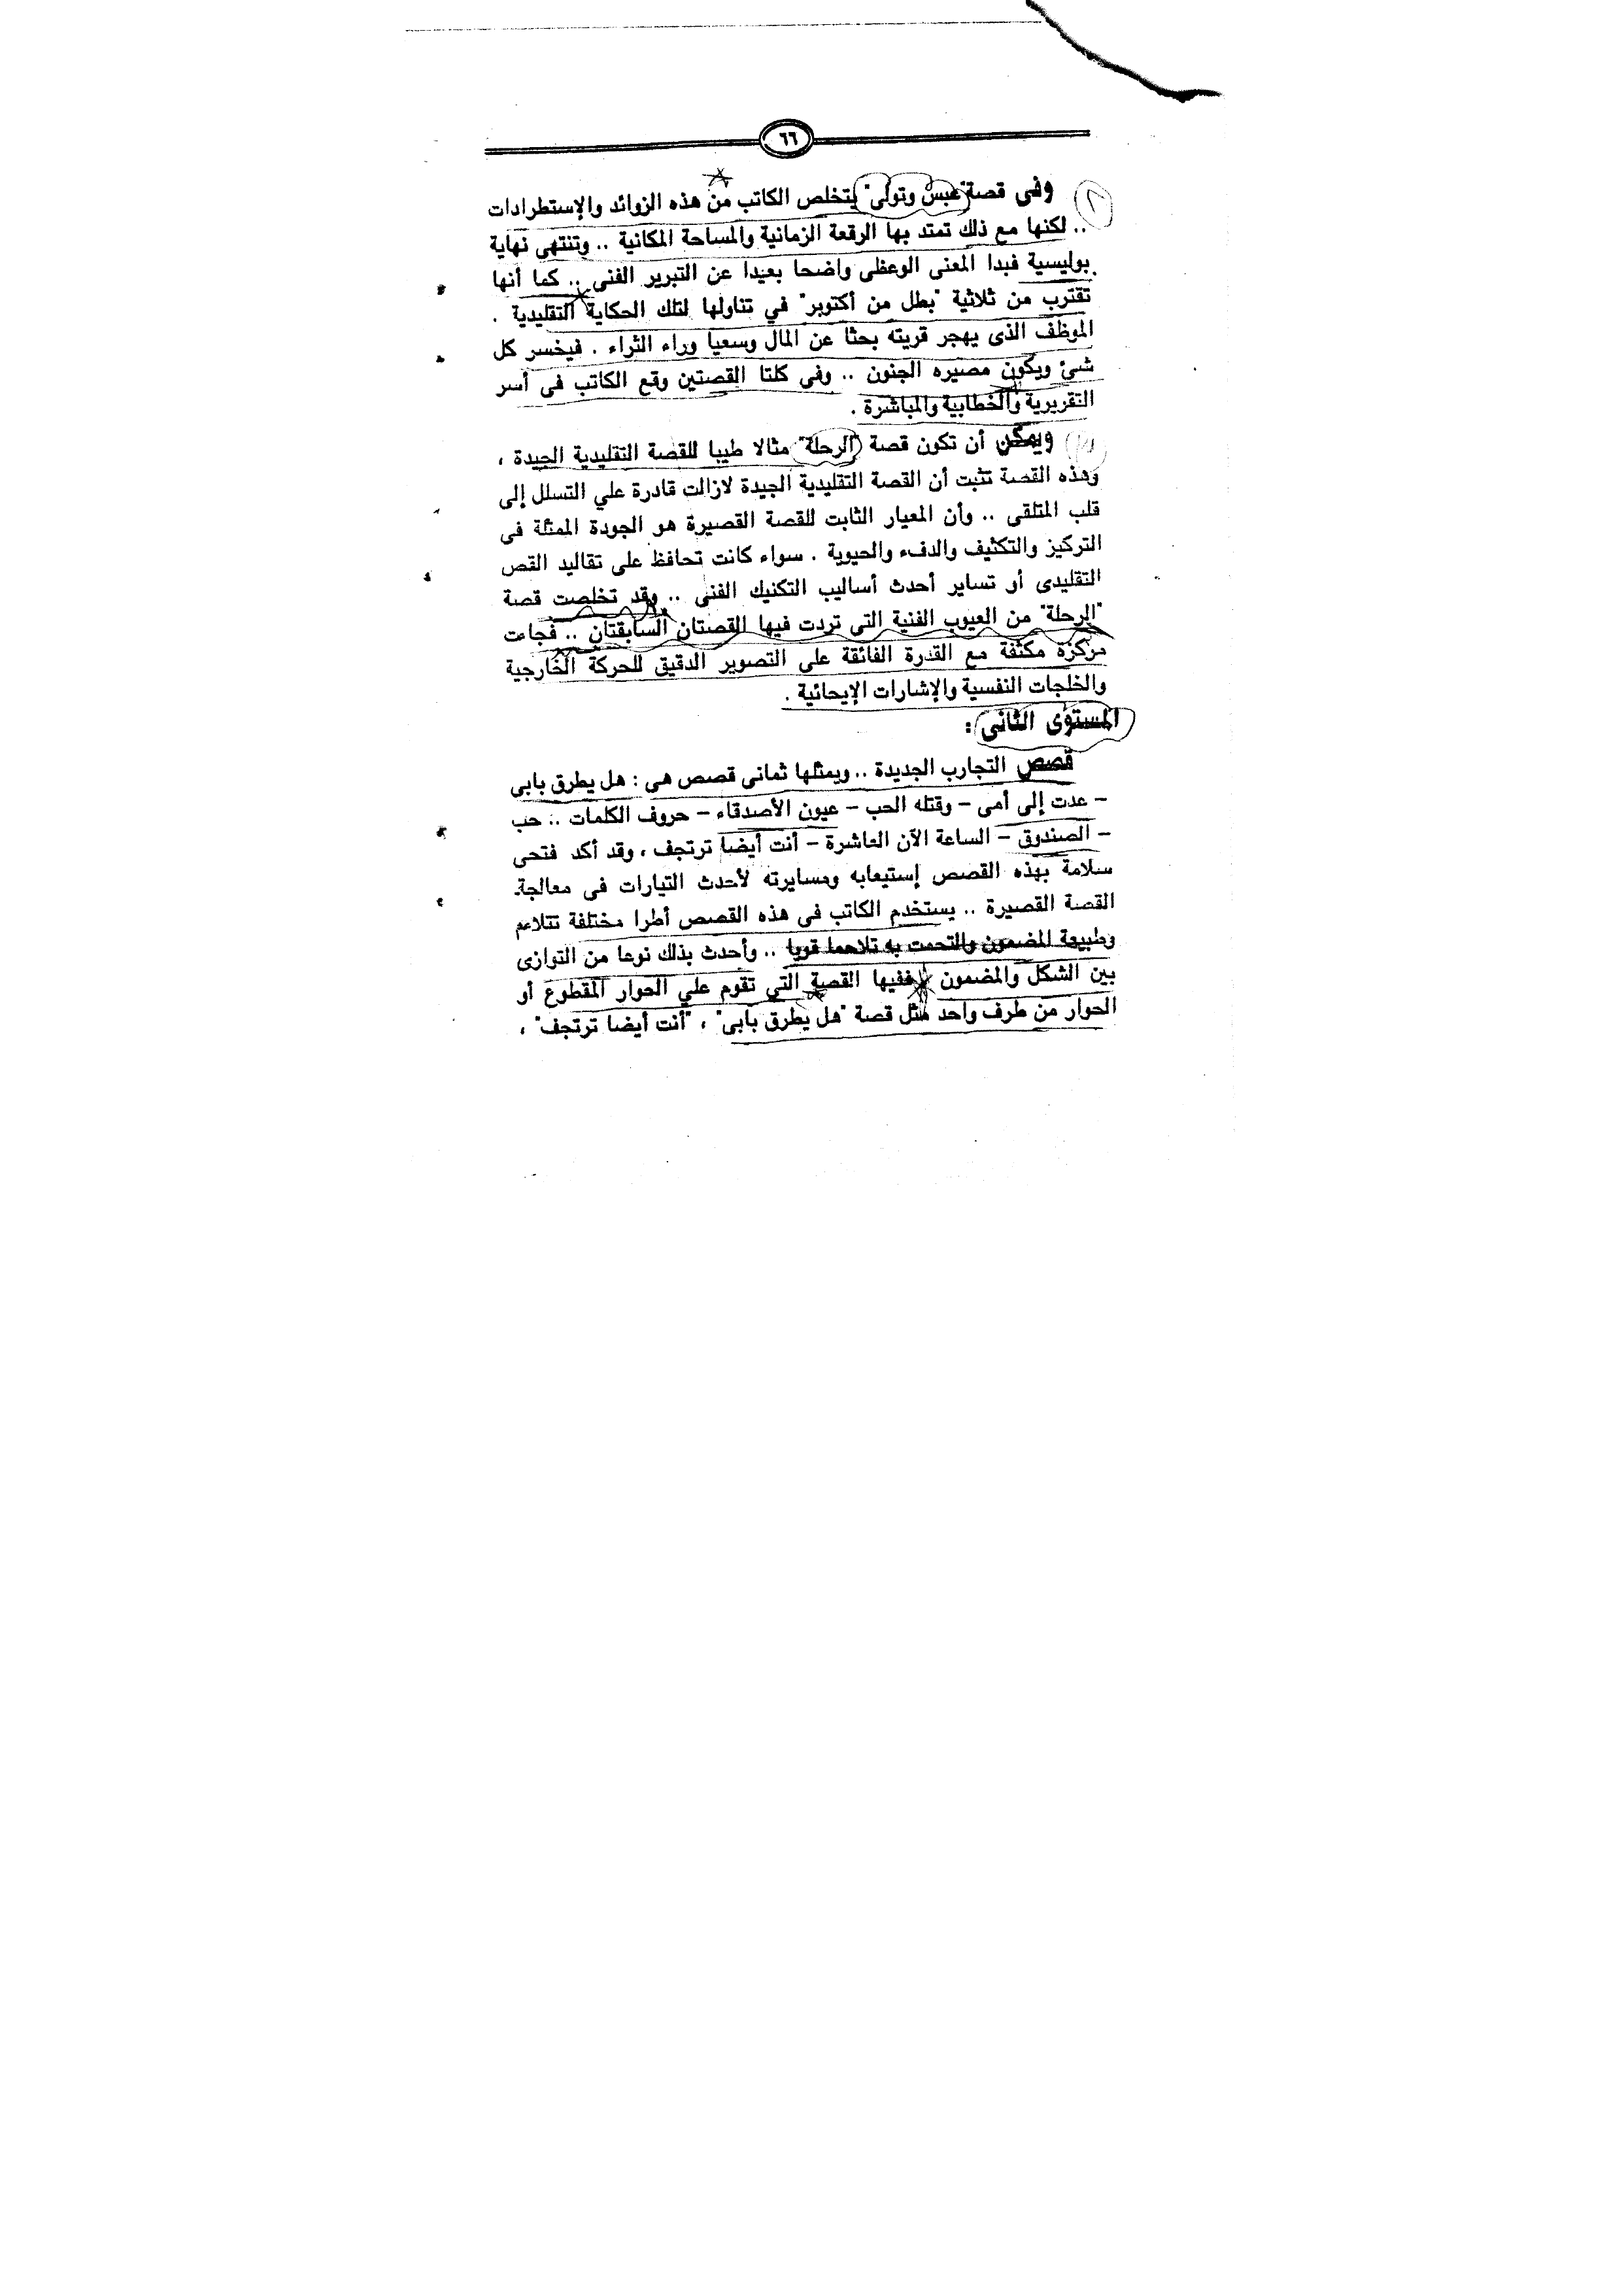 ٦٦
وفى قصة "عبس وتولى" يتخلص الكاتب من هذه الزوائد والإستطرادات
.. لكنها مع ذلك تمتد بها الرقعة الزمانية والمساحة المكانية .. وتنتهى نهاية
بوليسية فبدا المعنى الوعظى واضحا بعيدا عن التبرير الفنى .. كما أنها
تقترب من ثلاثية "بطل من أكتوبر" في تناولها لتلك الحكاية التقليدية .
الموظف الذى يهجر قريته بحثا عن المال وسعيا وراء الثراء . فيخسر كل
شئ ويكون مصيره الجنون .. وفى كلتا القصتين وقع الكاتب فى أسر
التقريرية والخطابية والمباشرة .
ويمكن أن تكون قصة "الرحلة" مثالا طيبا للقصة التقليدية الجيدة ،
وهذه القصة تثبت أن القصة التقليدية الجيدة لازالت قادرة علي التسلل إلى
قلب المتلقى .. وأن المعيار الثابت للقصة القصيرة هو الجودة الممثلة فى
التركيز والتكثيف والدفء والحيوية . سواء كانت تحافظ على تقاليد القص
التقليدى أو تساير أحدث أساليب التكنيك الفنى .. وقد تخلصت قصة
"الرحلة" من العيوب الفنية التى تردت فيها القصتان السابقتان .. فجاءت
مركزة مكثفة مع القدرة الفائقة على التصوير الدقيق للحركة الخارجية
والخلجات النفسية والإشارات الإيحائية .
المستوى الثانى :
قصص التجارب الجديدة .. ويمثلها ثمانى قصص هى : هل يطرق بابى
– عدت إلى أمى – وقتله الحب – عيون الأصدقاء – حروف الكلمات .. حب
– الصندوق – الساعة الآن العاشرة – أنت أيضا ترتجف ، وقد أكد فتحى
سلامة بهذه القصص إستيعابه ومسايرته لأحدث التيارات فى معالجة
القصة القصيرة .. يستخدم الكاتب فى هذه القصص أطرا مختلفة تتلاءم
وطبيعة المضمون والتحمت به تلاحما قويا .. وأحدث بذلك نوعا من التوازى
بين الشكل والمضمون ففيها القصة التي تقوم علي الحوار المقطوع أو
الحوار من طرف واحد مثل قصة "هل يطرق بابى" ، "أنت أيضا ترتجف" ،